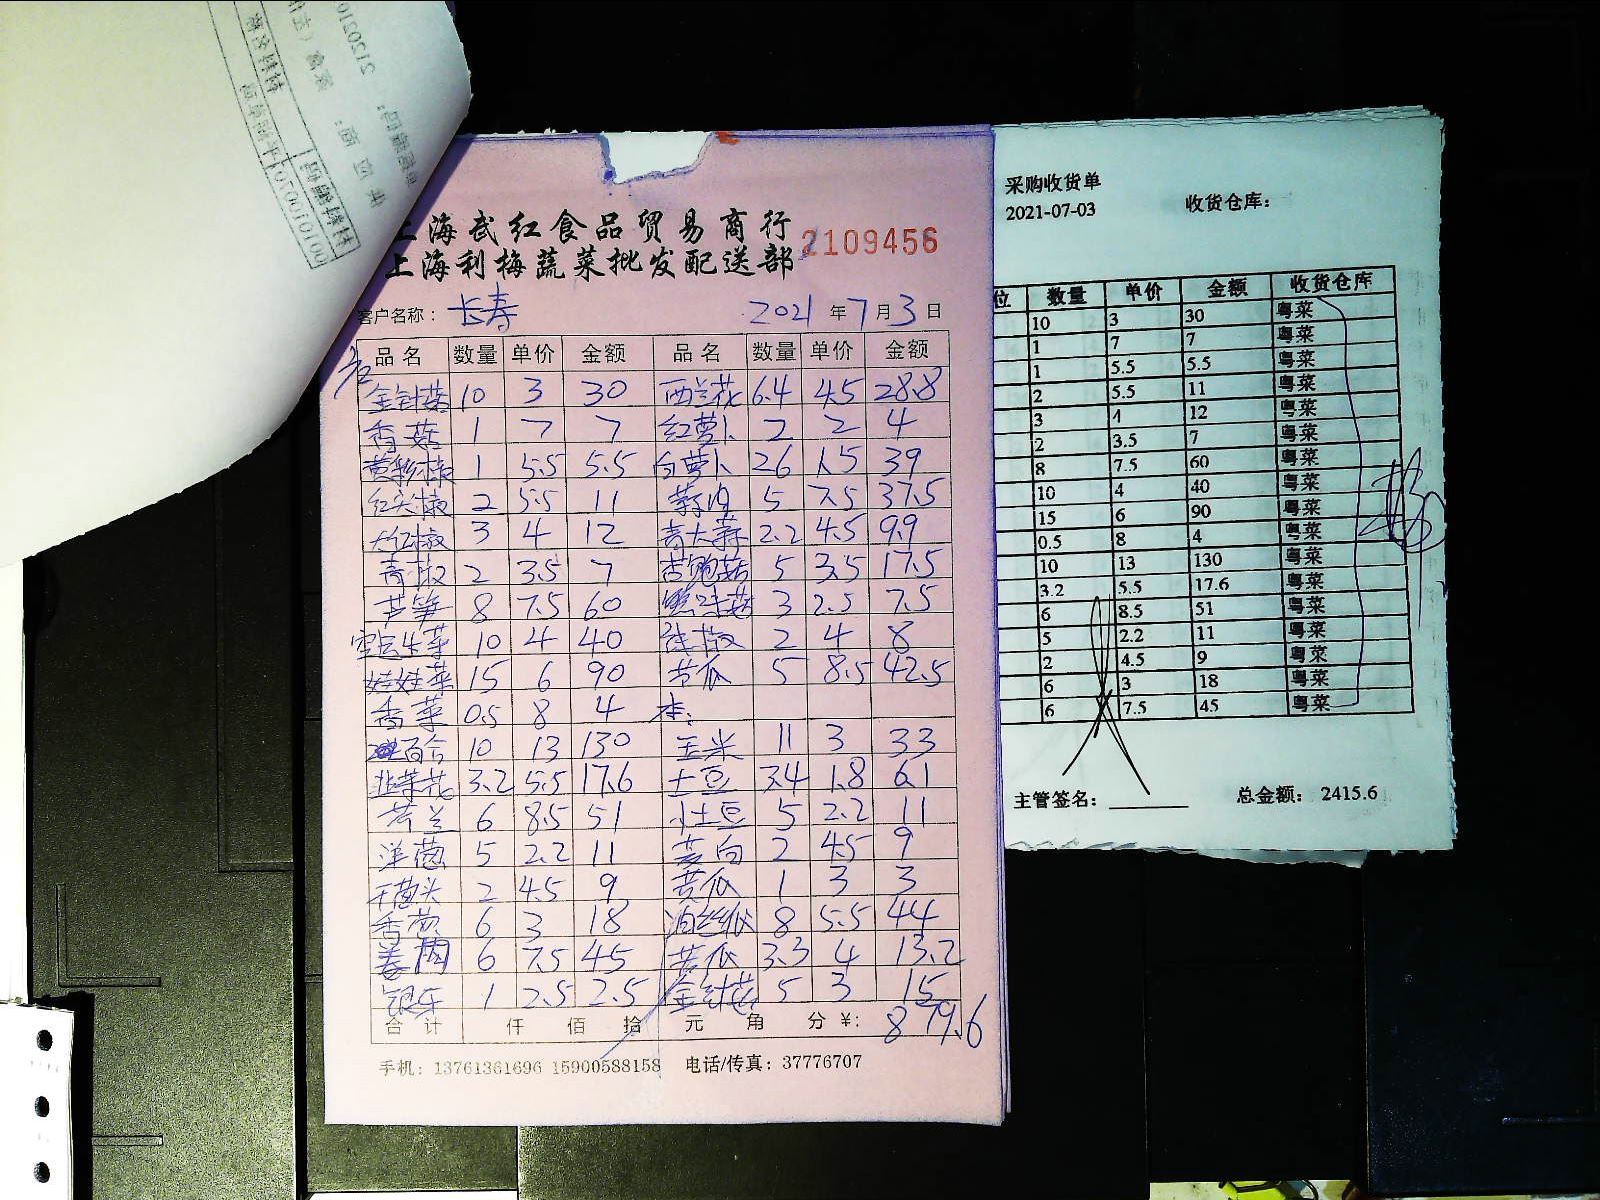 上海武红食品贸易商行
上海利梅蔬菜批发配送部
2109456
客户名称： 长寿 2021 年 7 月 3 日
品名 数量 单价 金额 品名 数量 单价 金额
金针菇 10 3 30 西兰花 6.4 4.5 28.8
香菇 1 7 7 红萝卜 2 2 4
黄彩椒 1 5.5 5.5 白萝卜 26 1.5 39
红尖椒 2 5.5 11 蒜肉 5 7.5 37.5
大红椒 3 4 12 青大蒜 2.2 4.5 9.9
青椒 2 3.5 7 杏鲍菇 5 3.5 17.5
芦笋 8 7.5 60 蟹味菇 3 2.5 7.5
10 4 40 2 4 8
娃娃菜 15 6 90 苦瓜 5 8.5 42.5
香菜 0.5 8 4
百合 10 13 130 玉米 11 3 33
韭菜花 3.2 5.5 17.6 土豆 3.4 1.8 6.1
芥兰 6 8.5 51 小土豆 5 2.2 11
洋葱 5 2.2 11 茭白 2 4.5 9
干葱头 2 4.5 9 1 3 3
香葱 6 3 18 8 5.5 44
姜肉 6 7.5 45 苦瓜 3.3 4 13.2
银牙 1 2.5 2.5 金针菇 5 3 15
合计 仟 佰 拾 元 角 分 ¥: 879.6
手机：13761361696 15900588158 电话/传真：37776707
采购收货单
2021-07-03 收货仓库：
位 数量 单价 金额 收货仓库
10 3 30 粤菜
1 7 7 粤菜
1 5.5 5.5 粤菜
2 5.5 11 粤菜
3 4 12 粤菜
2 3.5 7 粤菜
8 7.5 60 粤菜
10 4 40 粤菜
15 6 90 粤菜
0.5 8 4 粤菜
10 13 130 粤菜
3.2 5.5 17.6 粤菜
6 8.5 51 粤菜
5 2.2 11 粤菜
2 4.5 9 粤菜
6 3 18 粤菜
6 7.5 45 粤菜
主管签名： 总金额： 2415.6